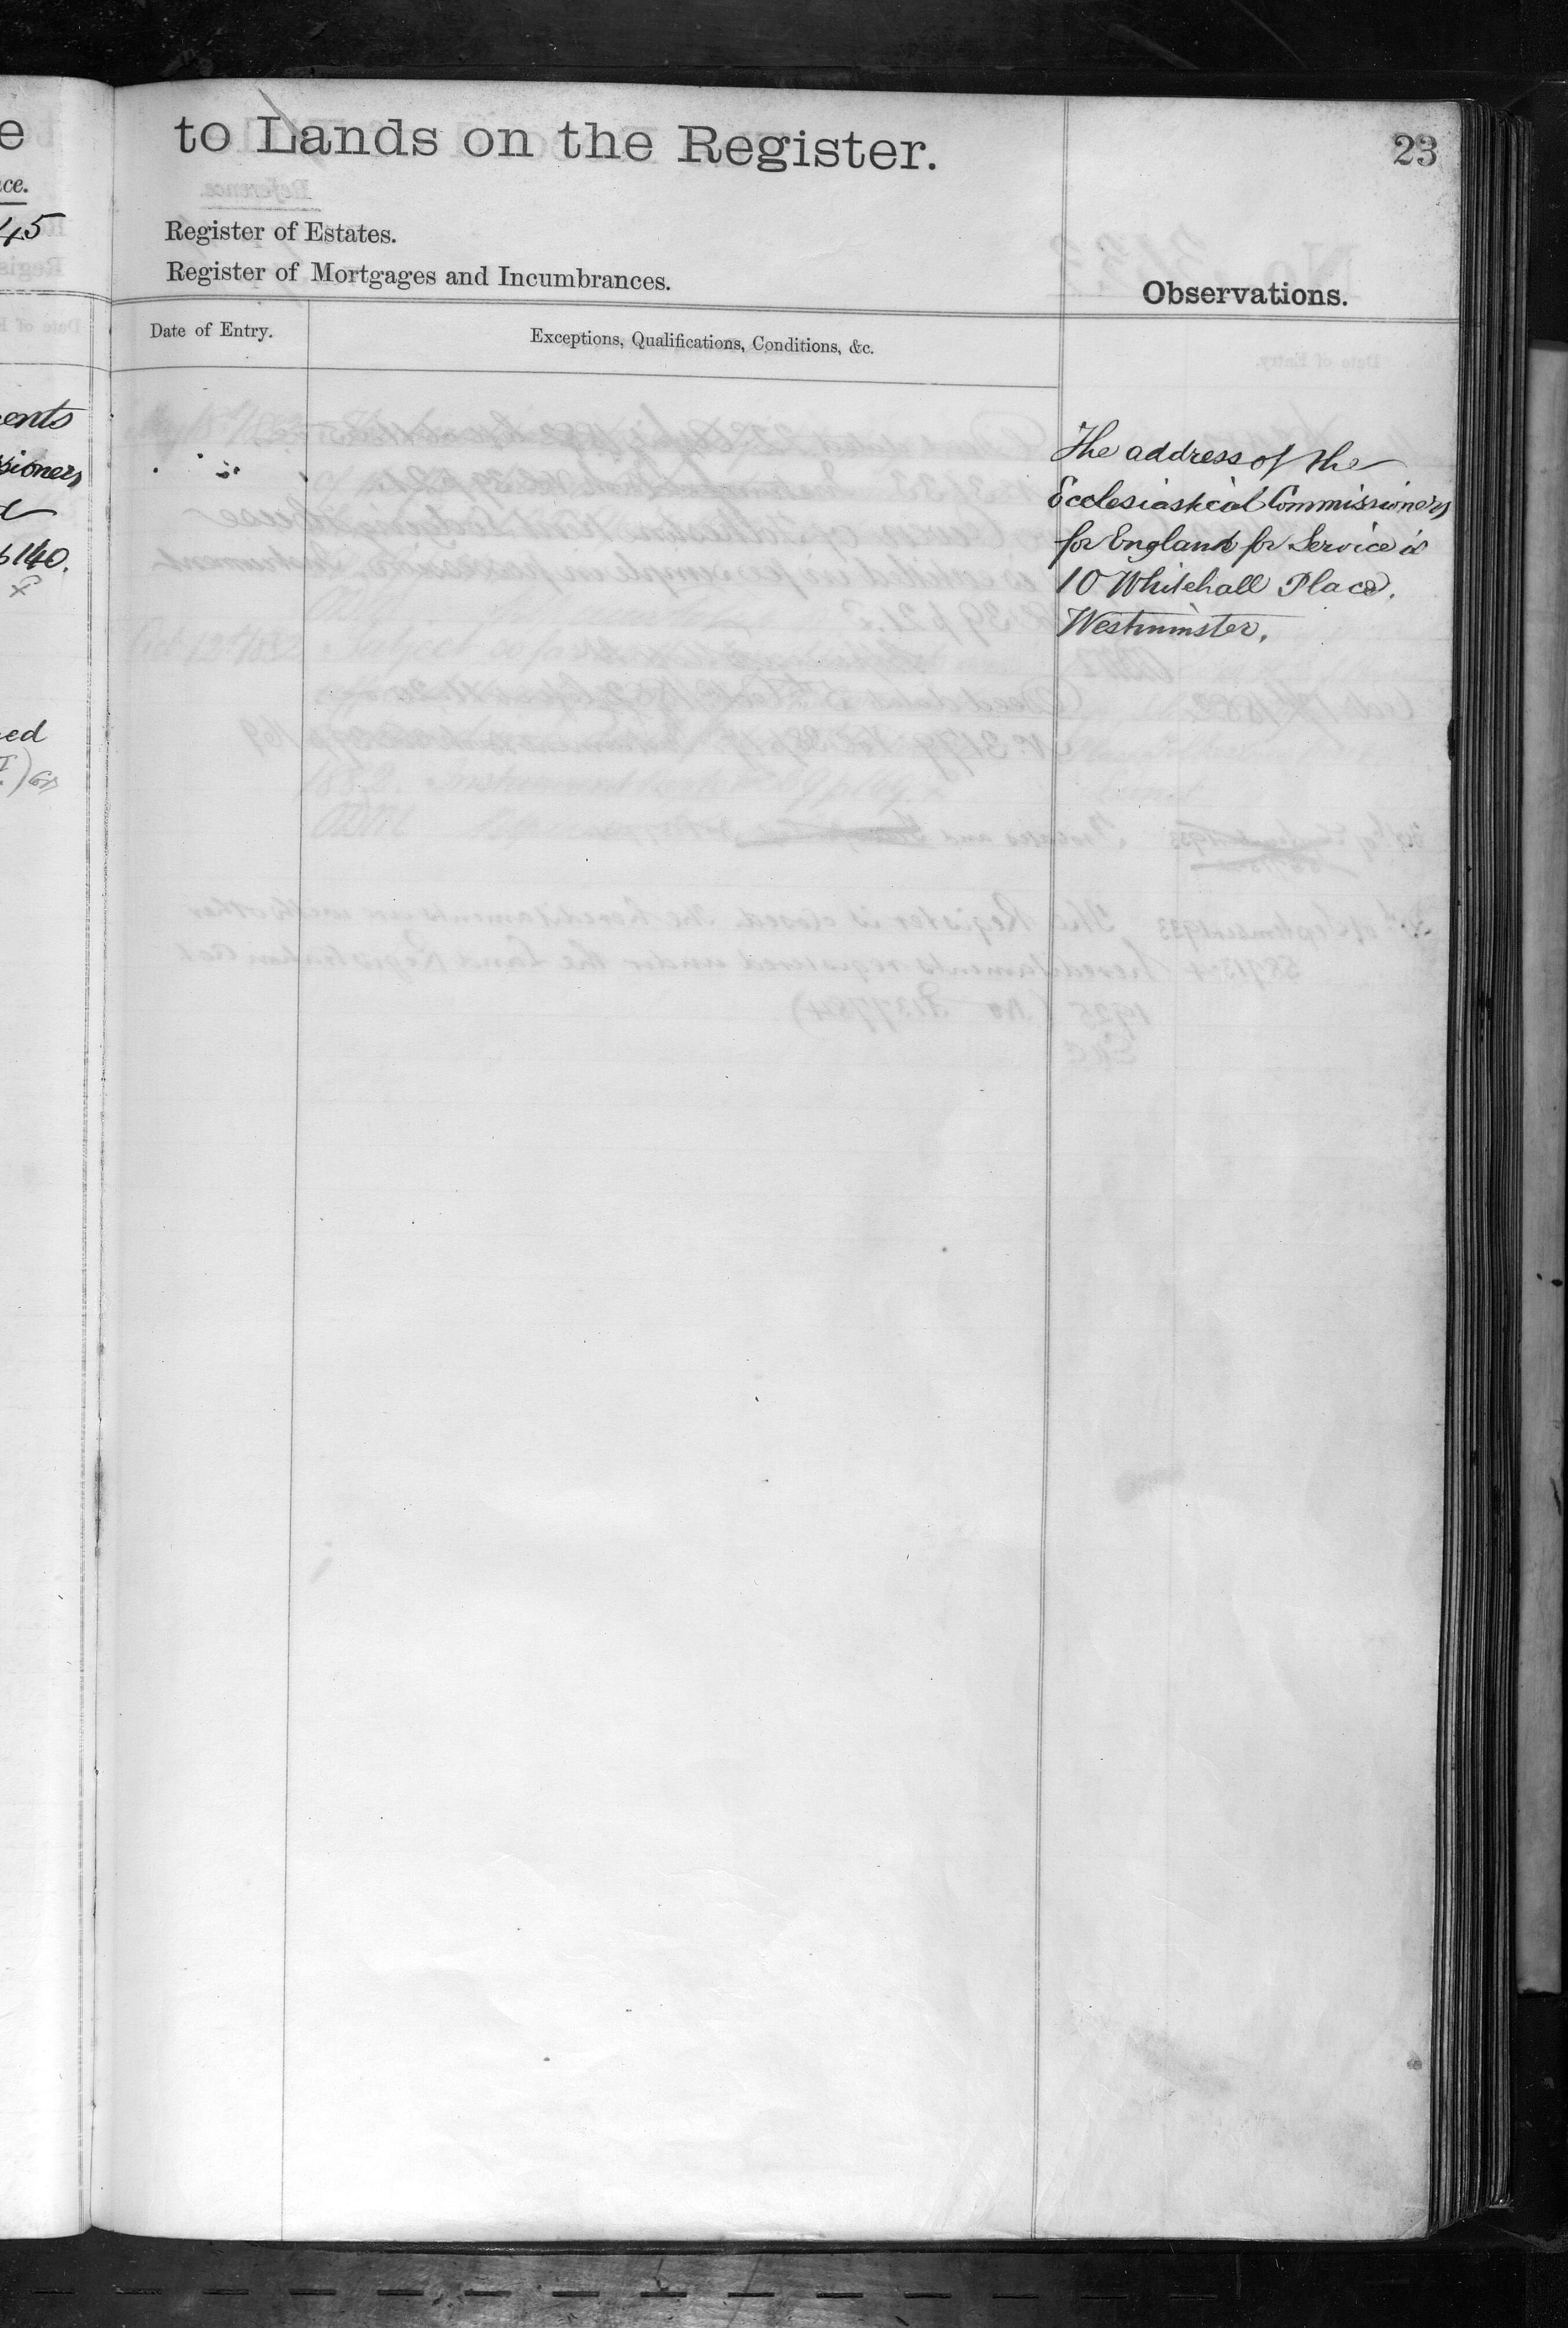 to Lands on the Register.
23
Register of Estates.
Register of Mortgages and Incumbrances.
Observations.
Date of Entry.
Exceptions, Qualifications, Conditions, &c.
The address of the
Ecclesiastical Commissioners
for England for Service is
10 Whitehall Place,
Westminster.
e
ce.
45
ents
sioners
140.
ed